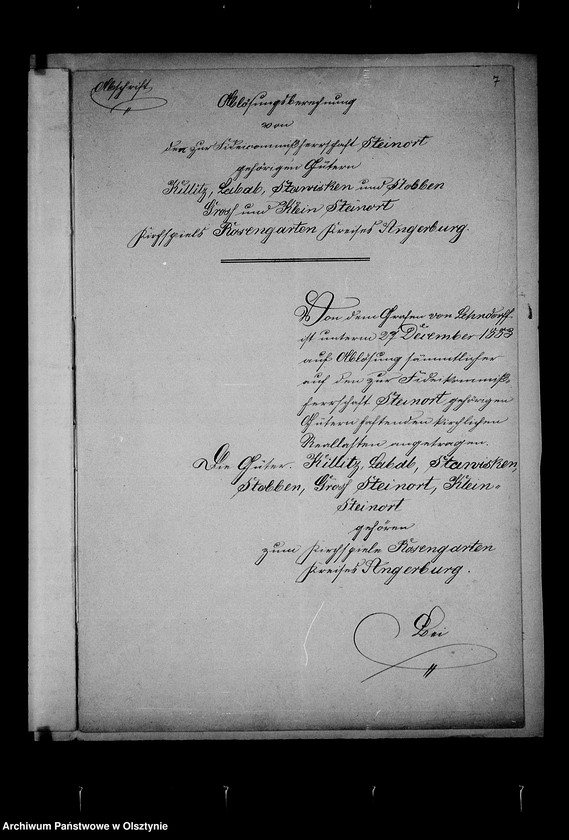 Abschrift
7
Ablösungsberechnung
von
den zur Fideicommißherrschaft Steinort
gehörigen Gütern
Kittlitz, Labab, Stawisken und Stobben
Groß und Klein Steinort
Kirchspiels Rosengarten Kreises Angerburg.
Von dem Grafen von Lehndorff
ist unterm 27 December 1853
auf Ablösung sämmtlicher
auf den zur Fideikommiß-
herrschaft Steinort gehörigen
Gütern haftenden kirchlichen
Reallasten angetragen.
Die Güter. Kittlitz, Labab, Stawisken,
Stobben, Groß Steinort, Klein-
Steinort
gehören
zum Kirchspiele Rosengarten
Kreises Angerburg.
Bei
Archiwum Państwowe w Olsztynie